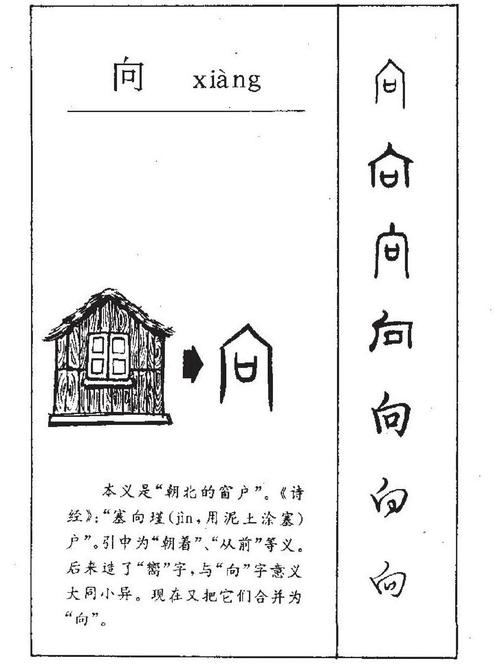 向 xiàng
本义是“朝北的窗户”。《诗
经》:“塞向墐(jìn,用泥土涂塞)
户”。引申为“朝着”、“从前”等义。
后来造了“嚮”字,与“向”字意义
大同小异。现在又把它们合并为
“向”。
向
向
向
向
向
向
向